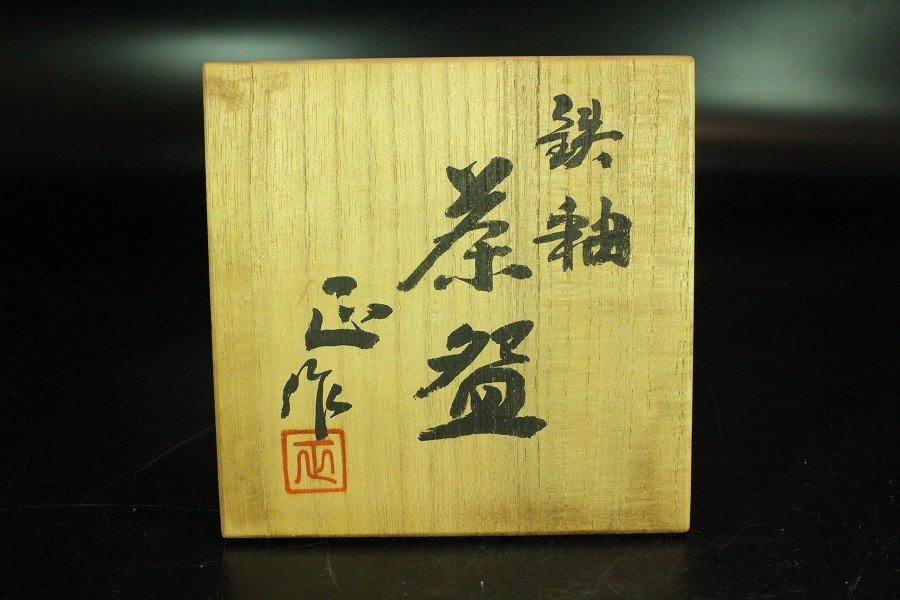 鉄釉
茶盌
正作
正